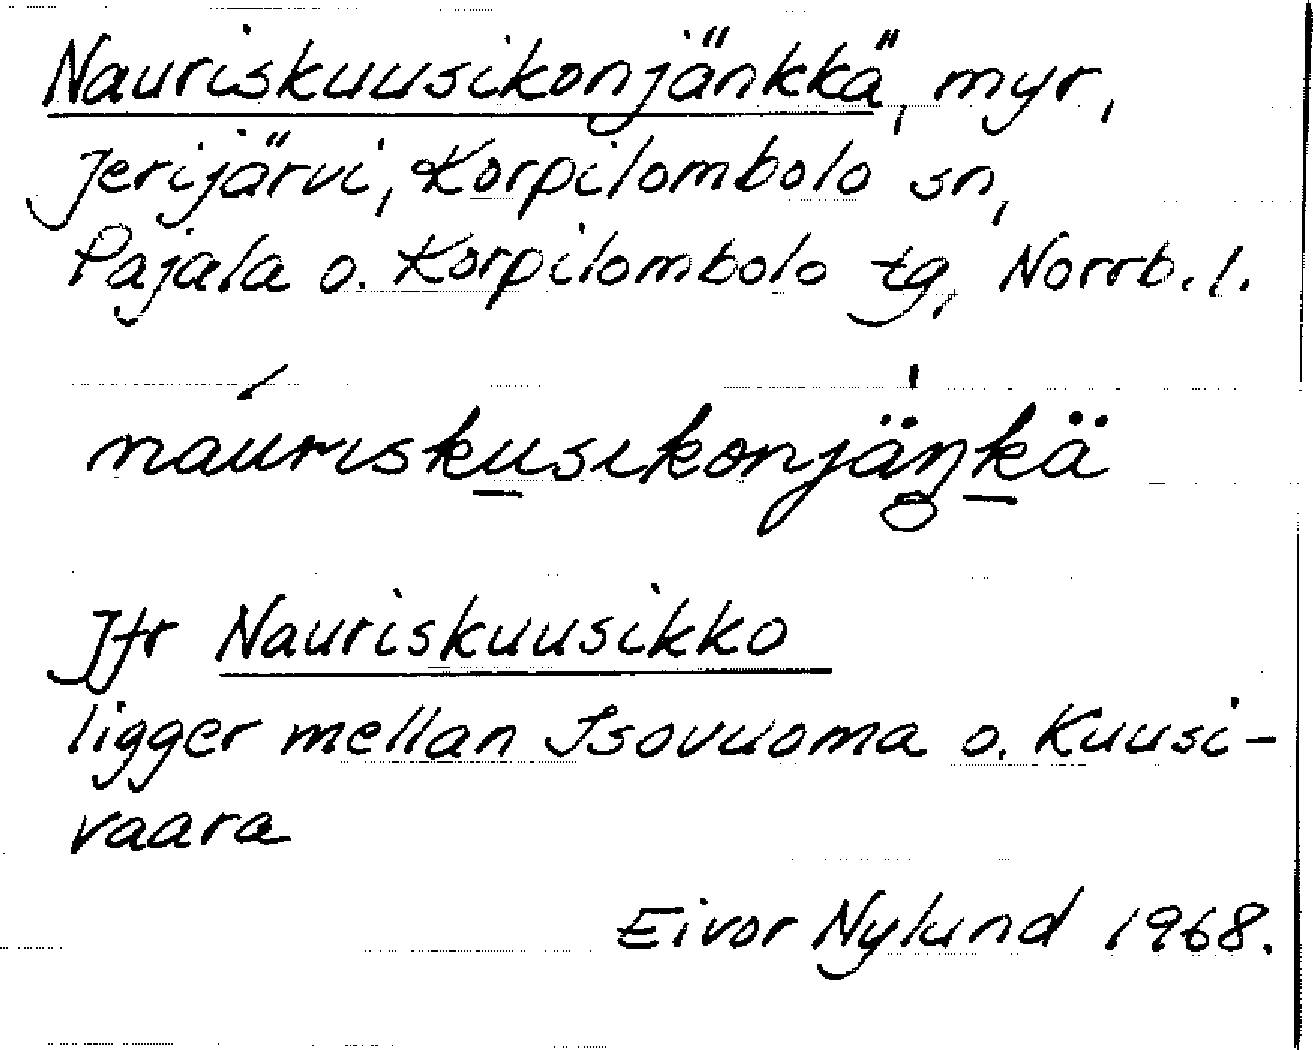 Nauriskuusikonjänkkä, myr,
Jerijärvi, Korpilombolo sn,
Pajala o. Korpilombolo tg, Norrb. l.
náurisku̲sikonjä̍ŋk̲ä
Jfr Nauriskuusikko
ligger mellan Isovuoma o. Kuusi-
vaara
Eivor Nylund 1968.